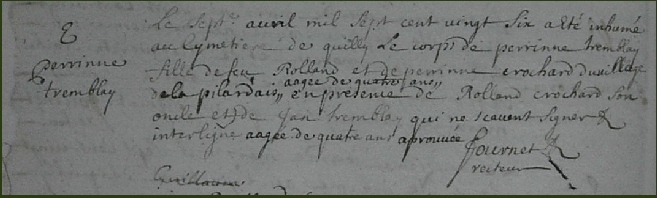 8
Perrinne
tremblay
Le septe avril mil sept cent vingt six a été inhumé
au Cymetiere de quilly Le corps de perrinne tremblay
fille de feu Rolland et de perrinne crochard du village
aagée de quatre ans
de la pilardais en presence de Rolland crochard son
oncle et de Jan tremblay qui ne scavent signer
interligne aagée de quatre ans aprouvée
fournet
recteur
Guillaume